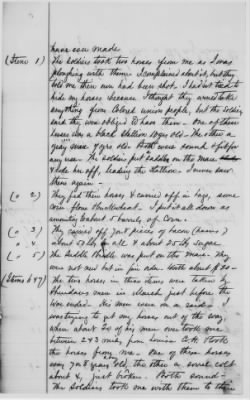 have ever made
(Item 1) The soldiers took two horses from me as I was
ploughing with them. I complained about it, but they
told me their men had been shot. I had not tried to
hide my horses because I thought they wouldn't take
anything from Colored union people, but the soldiers
said they was obliged to have them. One of these
horses was a black stallion 10 yrs old. The other a
gray mare 7 yrs old. Both were sound & fit for
any use. The soldiers put saddles on the mare
& rode her off, leading the stallion. I never saw
them again.
(" 2.) They fed their horses & carried off in bags, some
corn, flour & buckwheat. I put it all down as
amounting to about 5 barrels of Corn.
(" 3) They carried off 7 or 8 pieces of bacon (hams)
" 4. about 50 lbs in all & about 25 lbs sugar
(" 5) The saddle & bridle was put on this mare. They
were not new but in fair order. Worth about $20.
(Items 6 & 7) The two horses in these items were taken by
Sheridan's men in March just before the
War ended. His men were on a raid. I
was trying to get my horses out of the way
when about 20 of his men over took me
between 2 & 3 miles from Louisa C.H. & took
the horses from me. One of these horses
was 7 or 8 years old, the other a sorrel colt
about 4, just broken. Both sound.
The soldiers took one with them to their